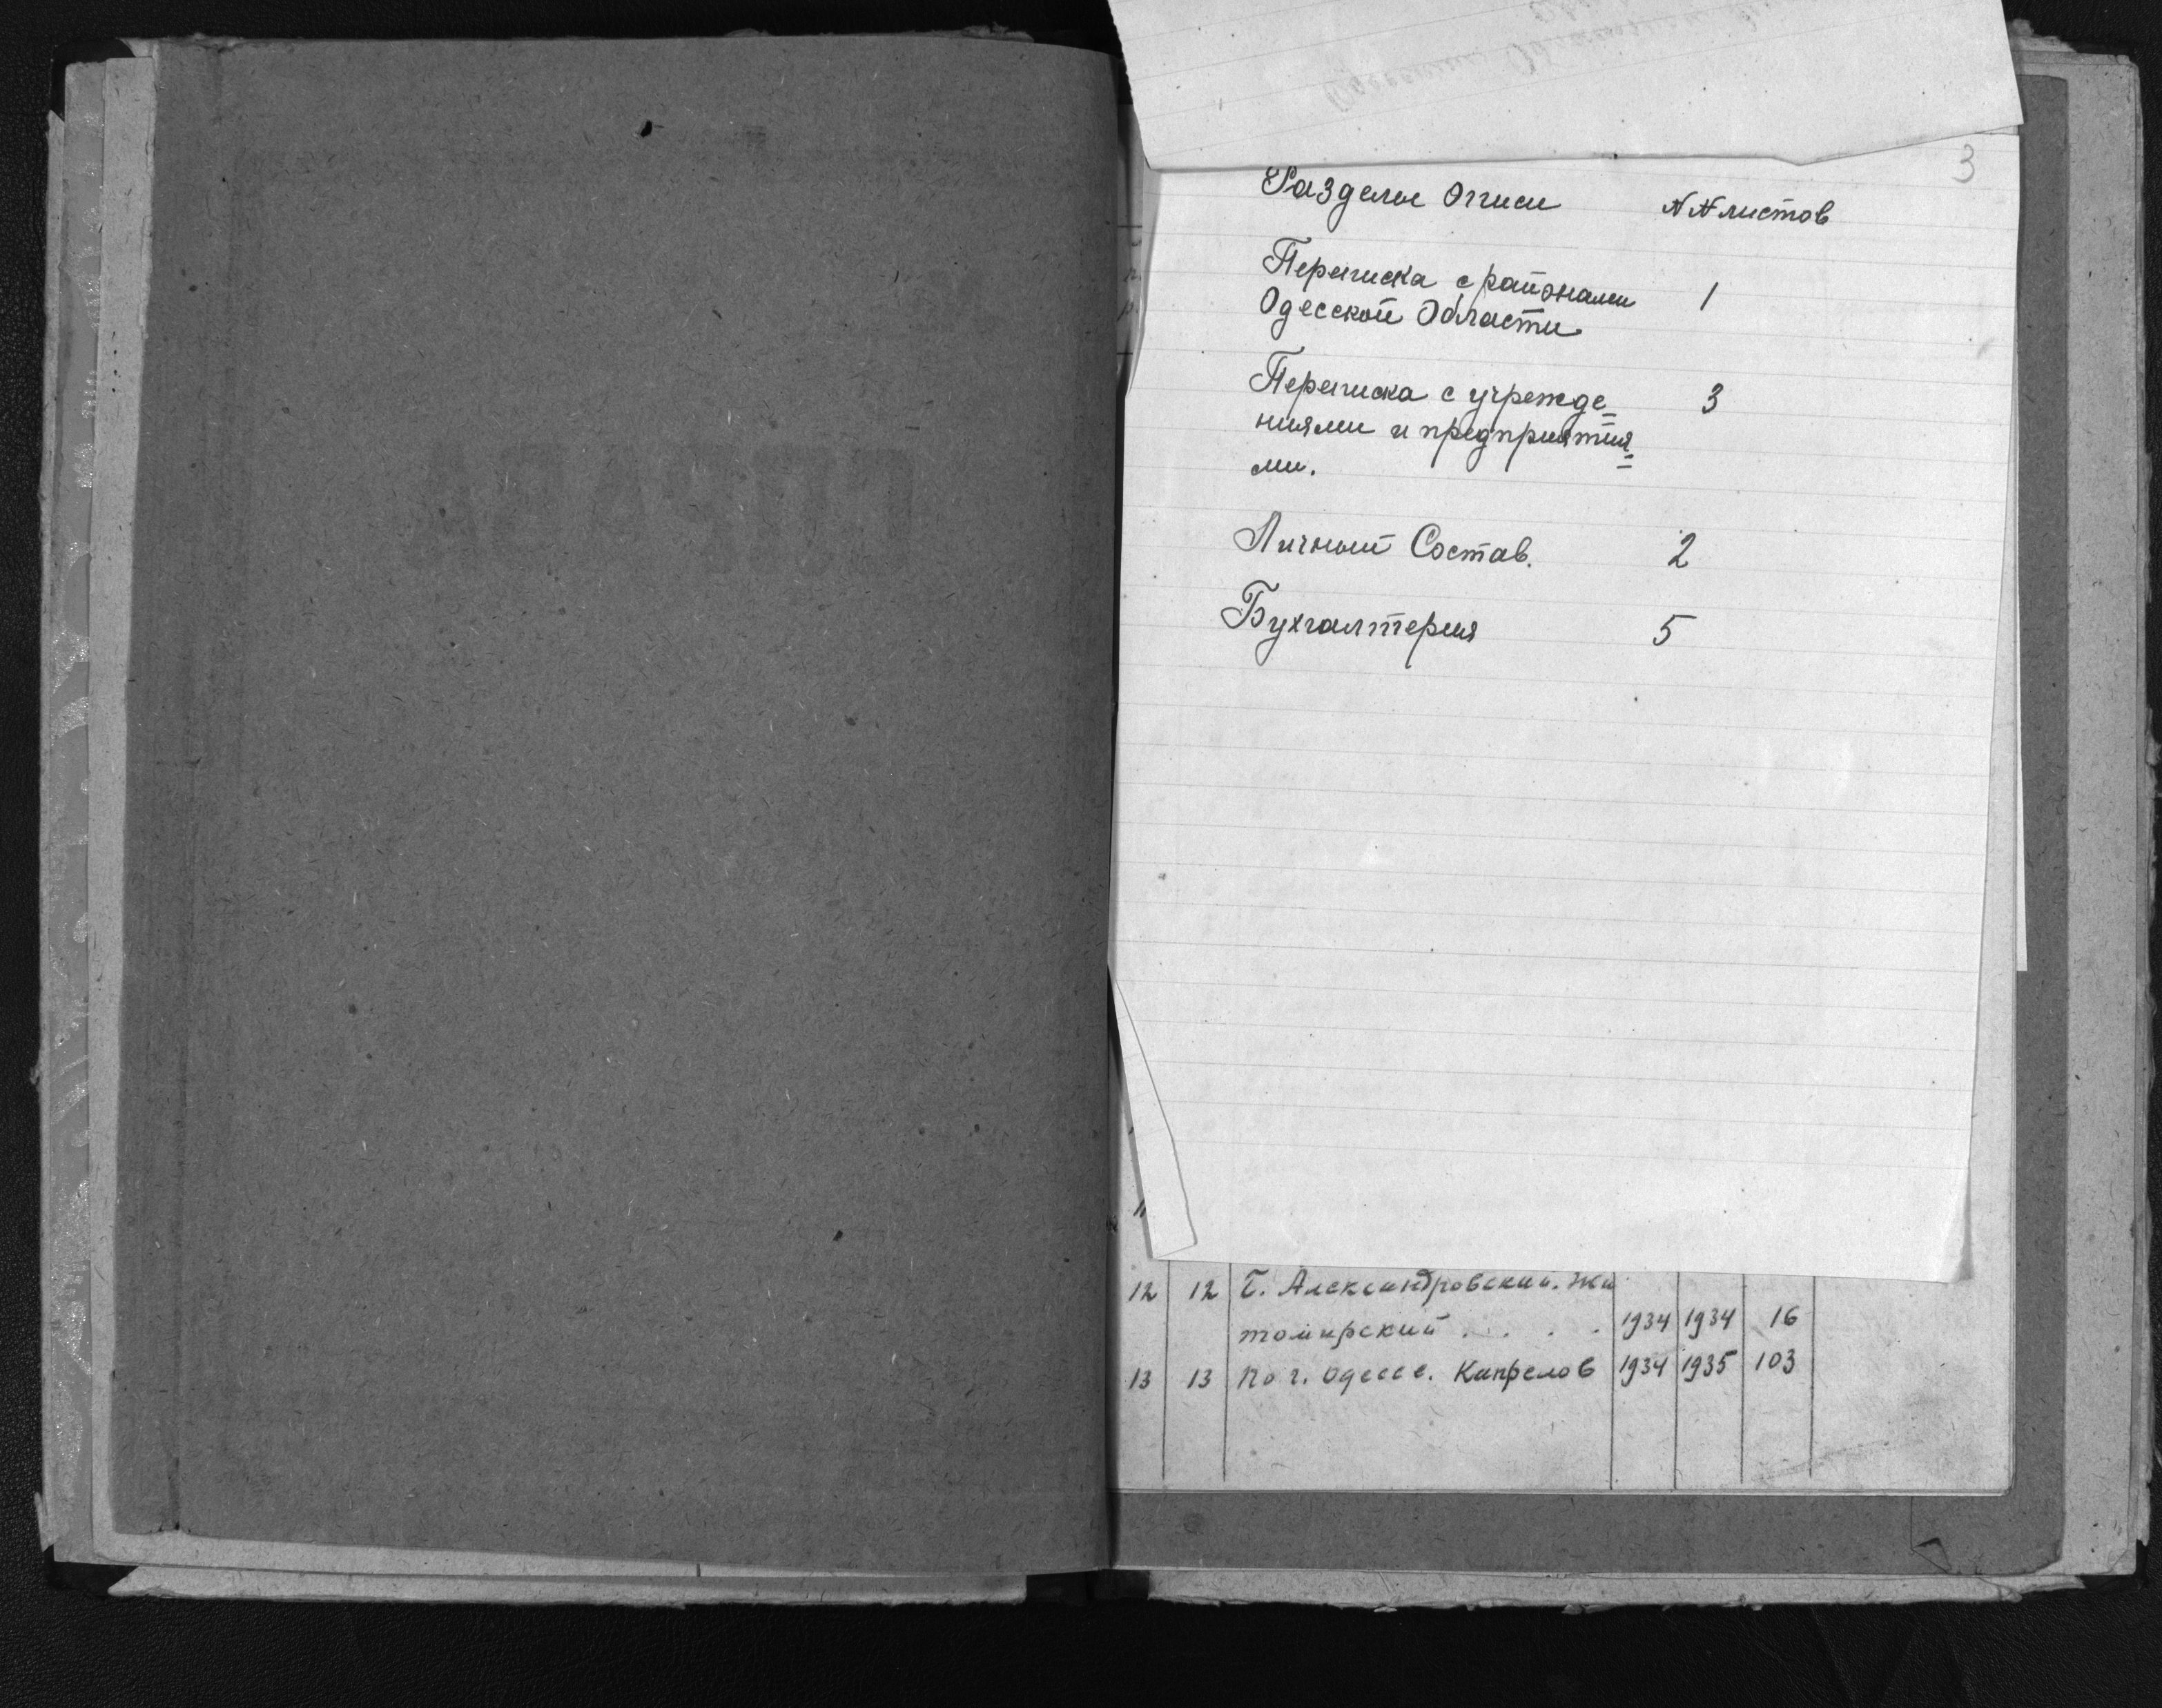 3
Разделы Описи NN листов
Переписка с районами 1
Одесской Области
Переписка с учрежде_ 3
ниями и предприятия=
ми.
Личный Состав. 2
Бухгалтерия 5
12 12 Б. Александровский. Жи
томирский . . . . 1934 1934 16
13 13 по г. Одессе. Капрелов 1934 1935 103